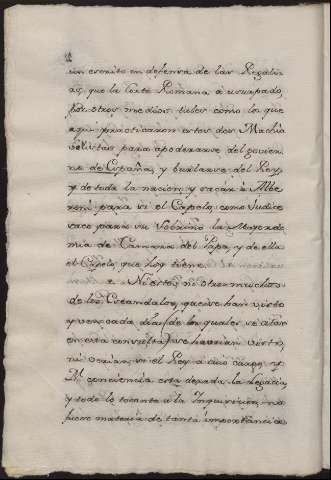 un escrito en defensa de las Regali
as, que la Corte Romana à usurpado,
por otros medios tales como los que
aqui practicaron estos dos Machia
velistas para apoderarse del govier
no de España, y burlarse del Rey
y de toda la nacion, y sacar à Albe
roni para si el Capelo, como Judice
saco para su Sobrino la Mayordo
mia de Camara del Papa, y de ella
el Capelo que hoy tiene.
Ni estos, ni otros muchos
de los Escandalos, que se han visto
y ven cada dia (de los quales se atan
en esta consulta) se havrian visto,
ni verian, si el Rey à cuio cargo, y
R. conciencia esta dexada la
y todo lo tocante à la Inquisicion, no
fuera materia de tanta importancia